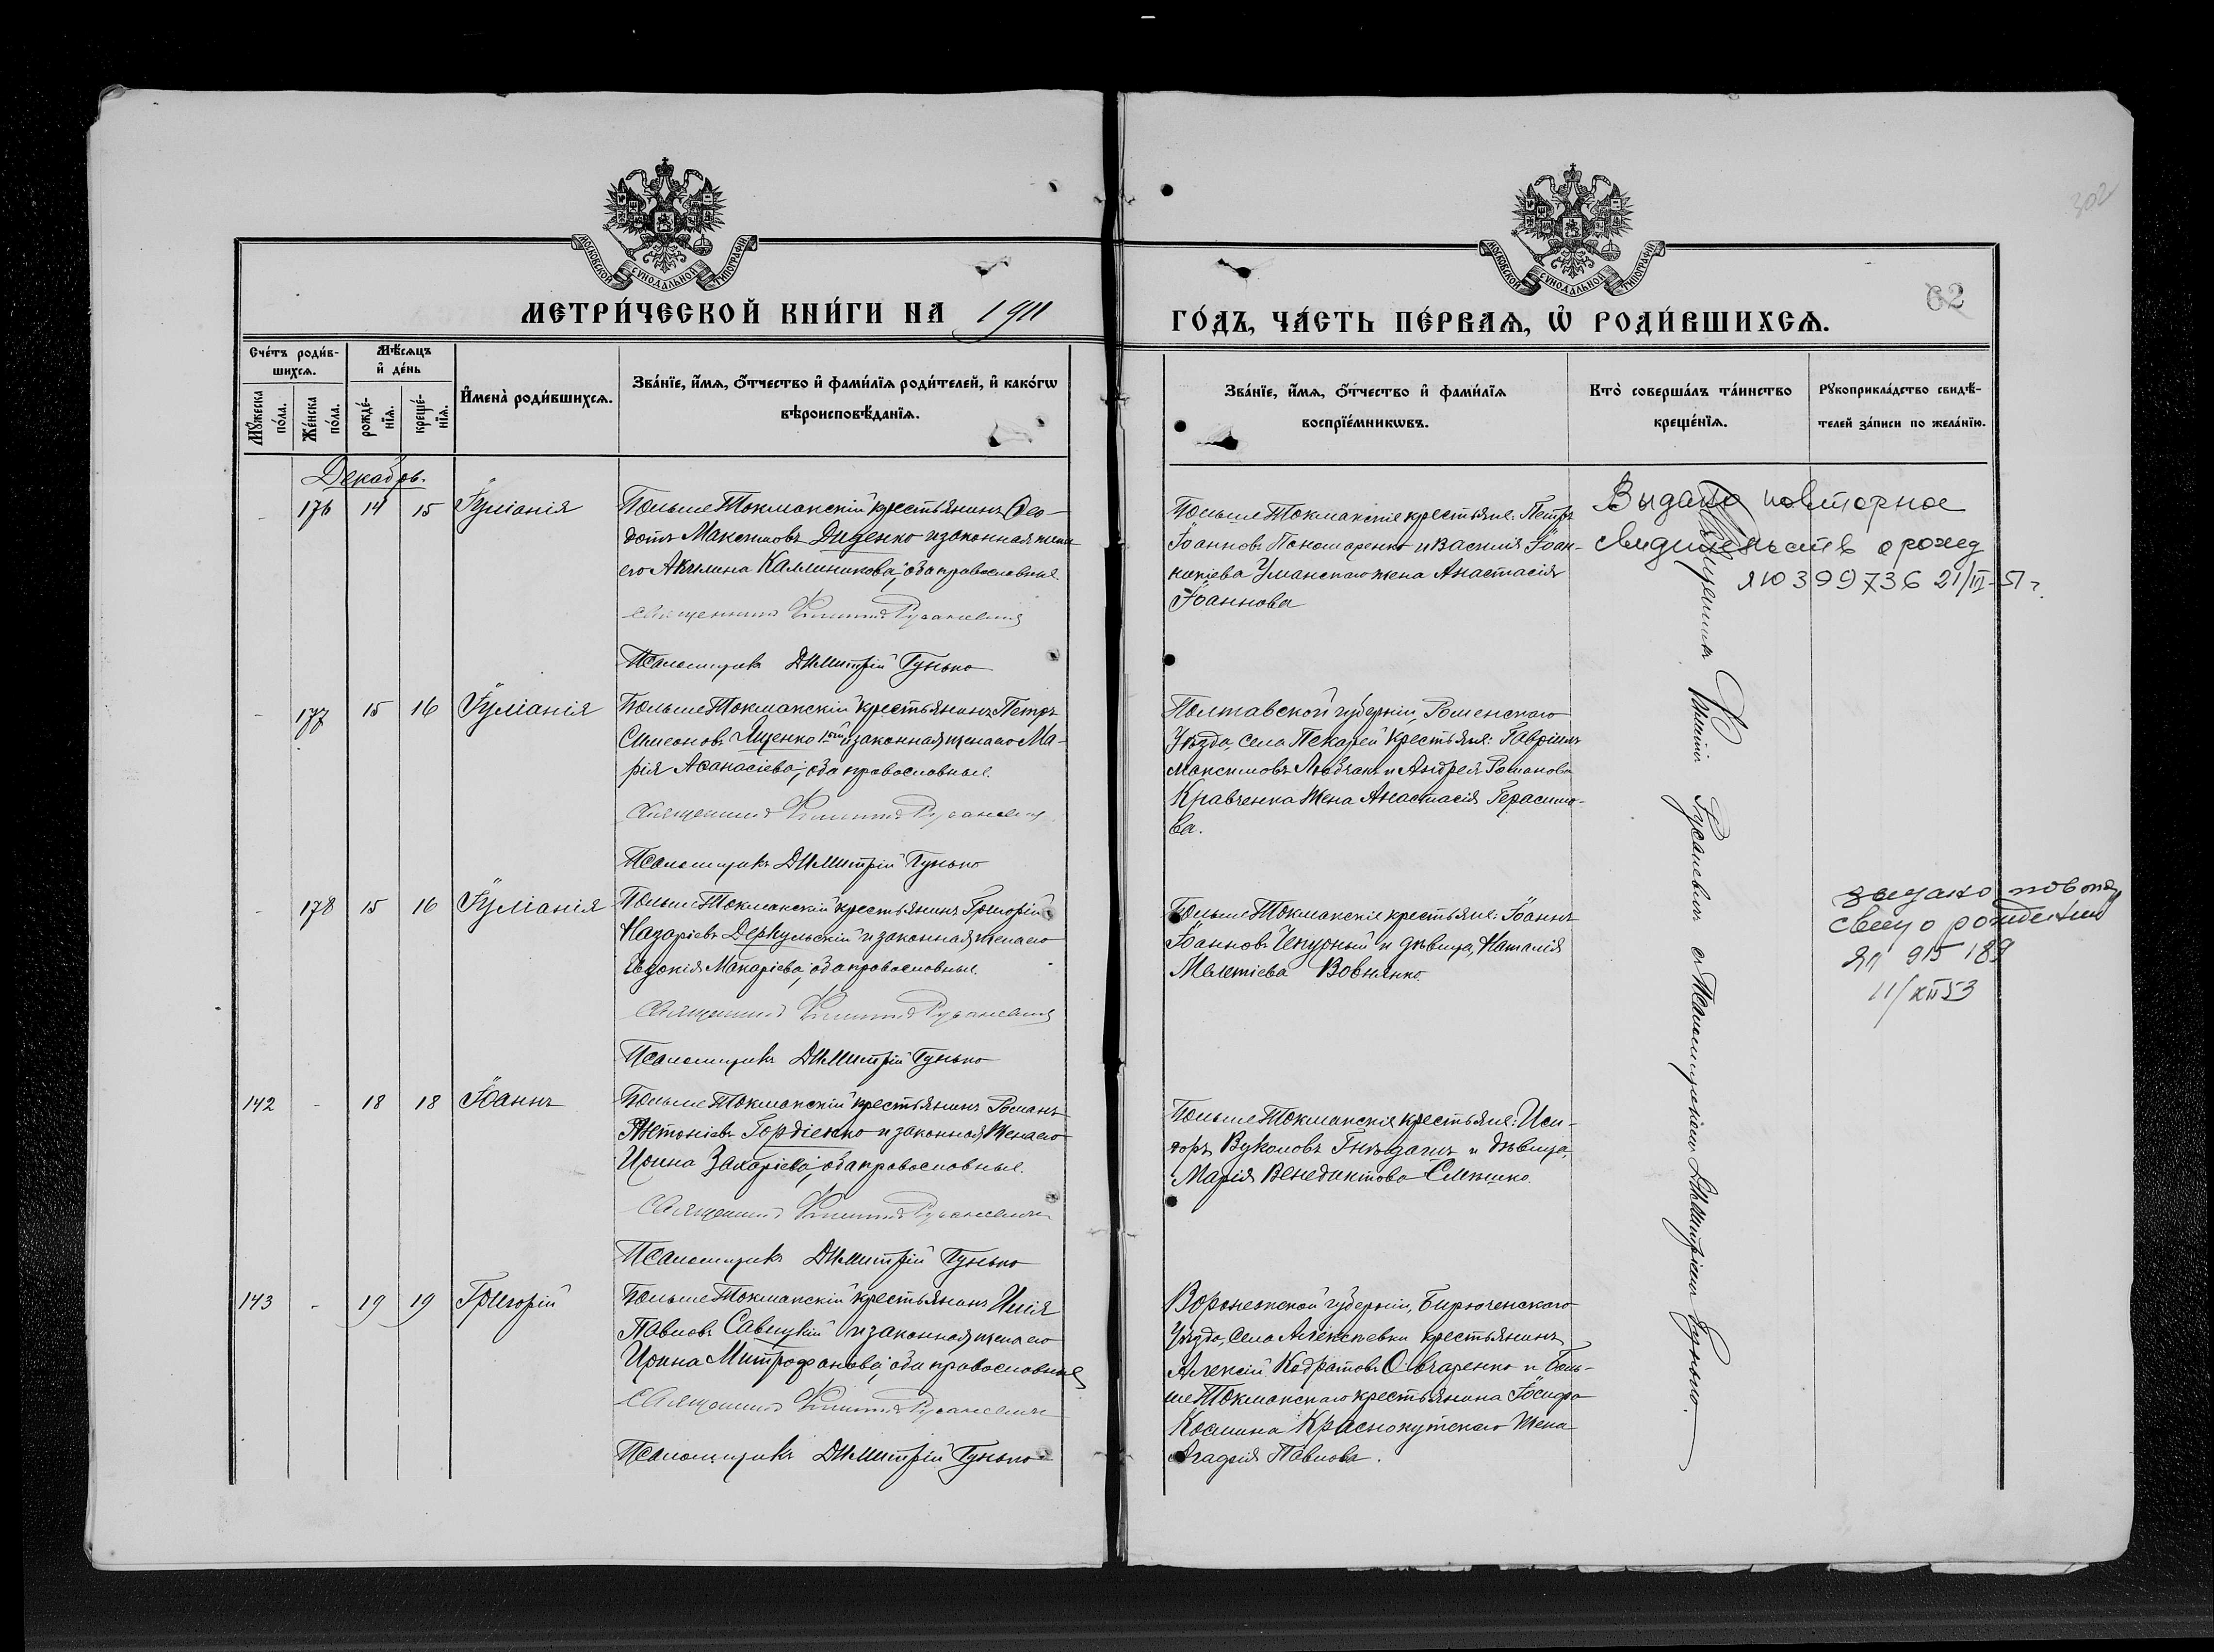 302
МОСКОВСКОЙ СѴНОДАЛЬНОЙ ТИПОГРАФІИ
МОСКОВСКОЙ СѴНОДАЛЬНОЙ ТИПОГРАФІИ
62
МЕТРИ́ЧЕСКОЙ КНИ́ГИ НА 1911
ГО́ДЪ, ЧА́СТЬ ПЕ́РВАѦ, Ѡ҆ РОДИ́ВШИХСѦ.
Сче́тъ роди́в-
шихсѧ.
Мѣ́сѧцъ
и҆ де́нь
Мꙋ́жеска
по́ла.
Же́нска
по́ла.
рожде́-
нїѧ.
креще́-
нїѧ.
И҆мена̀ роди́вшихсѧ.
Зва́нїе, и҆́мѧ, ѻ҆́тчество и҆ фами́лїѧ роди́телей, и҆ како́гѡ
вѣроисповѣ́данїѧ.
Зва́нїе, и҆́мѧ, ѻ҆́тчество и҆ фами́лїѧ
воспрїе́мникѡвъ.
Кто̀ соверша́лъ та́инство
креще́нїѧ.
Рꙋкоприкла́дство свидѣ́-
телей за́писи по жела́нїю.
Декабрь.
- 176 14 15 Іуліанія
Больше Токмакскій крестьянинъ Ѳео-
дотъ Максимовъ Диденко и законная жена
его Акилина Каллиникова, оба православные.
Священникъ Филиппъ Русаневичъ
Псаломщикъ Димитрій Гунько
Больше Токмакскіе крестьяне: Петръ
Іоанновъ Пономаренко и Василія Іоан-
никіева Уманскаго жена Анастасія
Іоаннова
Выдано повторное
свидительств о рожд
ЯЮ 399736 21/III-51 г.
- 177 15 16 Іуліанія
Больше Токмакскій крестьянинъ Петръ
Симеоновъ Яценко 1-й и законная жена его Ма-
рія Аѳанасіева, оба православные.
Священникъ Филиппъ Русаневичъ
Псаломщикъ Димитрій Гунько
Полтавской губерніи, Роменскаго
Уѣзда, села Пекарей крестьяне: Гавріилъ
Максимовъ Любчакъ и Андрея Романова
Кравченка жена Анастасія Герасимо-
ва.
- 178 15 16 Іуліанія
Больше Токмакскій крестьянинъ Григорій
Назаріевъ Деркульскій и законная жена его
Евдокія Макаріева, оба православные.
Священникъ Филиппъ Русаневичъ
Псаломщикъ Димитрій Гунько
Больше Токмакскіе крестьяне: Іоаннъ
Іоанновъ Чепурный и дѣвица, Наталія
Мелетіева Вовнянко.
о рождении
915 189
11/XII 53
142 - 18 18 Іоаннъ
Больше Токмакскій крестьянинъ Романъ
Антоніевъ Гордіенко и законная жена его
Ирина Захаріева, оба православные.
Священникъ Филиппъ Русаневичъ
Псаломщикъ Димитрій Гунько
Больше Токмакскіе крестьяне: Иси-
доръ Вуколовъ Гнѣздилъ и дѣвица,
Марія Венедиктова
143 - 19 19 Григорій
Больше Токмакскій крестьянинъ Илія
Павловъ Савицкій и законная жена его
Ирина Митрофанова, оба православные
Священникъ Филиппъ Русаневичъ
Псаломщикъ Димитрій Гунько
Воронежской губерніи, Бирюченскаго
Уѣзда, села Алексѣевки крестьянинъ
Алексій Кодратовъ Овчаренко и Боль-
ше Токмакскаго крестьянина Іосифа
Космина Краснокутскаго жена
Агафія Павлова.
Священникъ Филиппъ Русаневичъ съ Псаломщикомъ Димитріемъ Гунько.